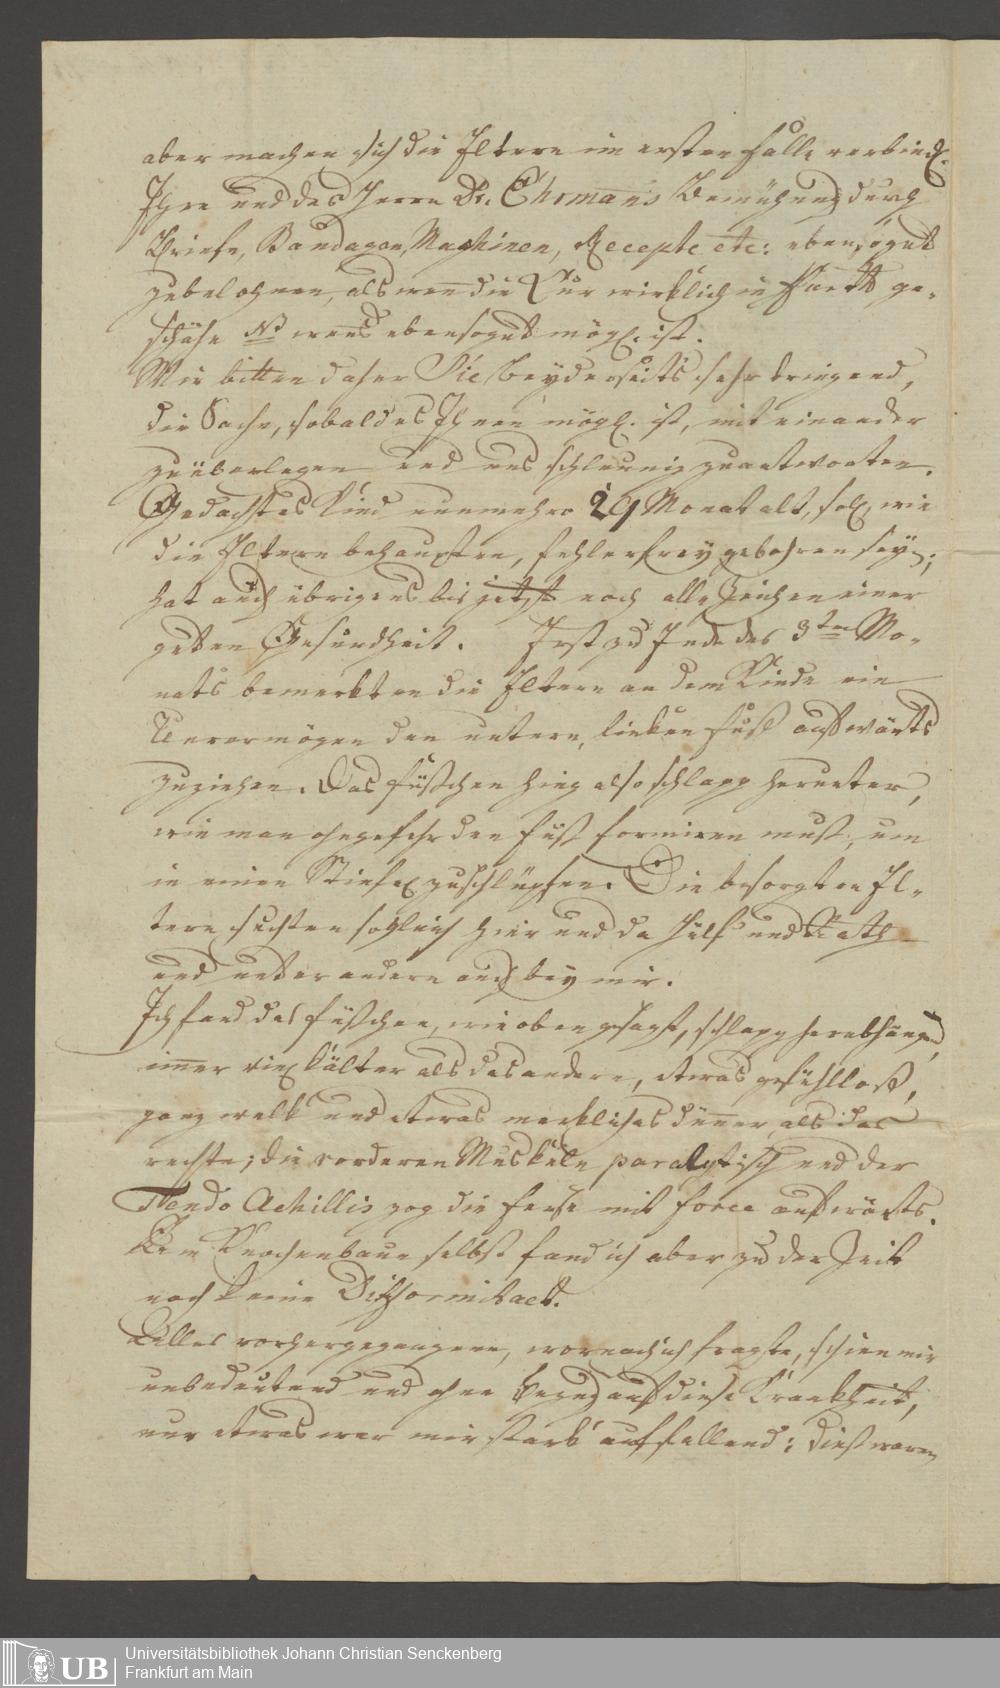 aber machen sich die Eltern im ersten Falle verbindl.
Ihre und des Herrn Dr. Ehrmans Bemühung durch
Briefe, Bandagen, Maschinen, Recepte etc: eben so gut
zu belohnen, als wenn die Cur wirklich in Fürth ge-
schähe NB wenns ebensogut mögl. ist.
Wir bitten daher Sie beyderseits sehr dringend,
die Sache, sobald es Ihnen mögl. ist, mit einander
zu überlegen und uns schleunig zu antworten.
Gedachtes Kind nunmehro 29 Monat alt, soll, wie
die Eltern behaupten, fehlerfrey gebohren seyn;
hat auch übrigens bis jetzt noch alle Zeichen einer
guten Gesundheit. Erst zu Ende des 3ten Mo-
nats bemerkten die Eltern an dem Kinde ein
Unvermögen den untern, linken Fuß aufwärts
zu ziehen. Das Füßchen hing also schlapp herunter,
wie man ohngefehr den Fuß formiren muß, um
in einen Stiefel zu schlüpfen. Die besorgten El-
tern suchten sogleich hier und da Hülf und Rath
und unter andern auch bey mir.
Ich fand das Füßchen, wie oben gesagt, schlapp herabhängend,
immer viel kälter als das andere, etwas gefühlloß,
ganz welk und etwas merkliches dünner, als das
rechte; die vorderen Muskeln paralytisch und der
Tendo Achillis zog die Ferse mit force aufwärts.
Am Knochenbaue selbst fand ich aber zu der Zeit
noch keine Difformitaet.
Alles vorhergegangene, wornach ich fragte, schien mir
unbedeutend und ohne Bezug auf diese Krankheit,
nur etwas war mir stark auffallend: dieß waren
Universitätsbibliothek Johann Christian Senckenberg
Frankfurt am Main
UB